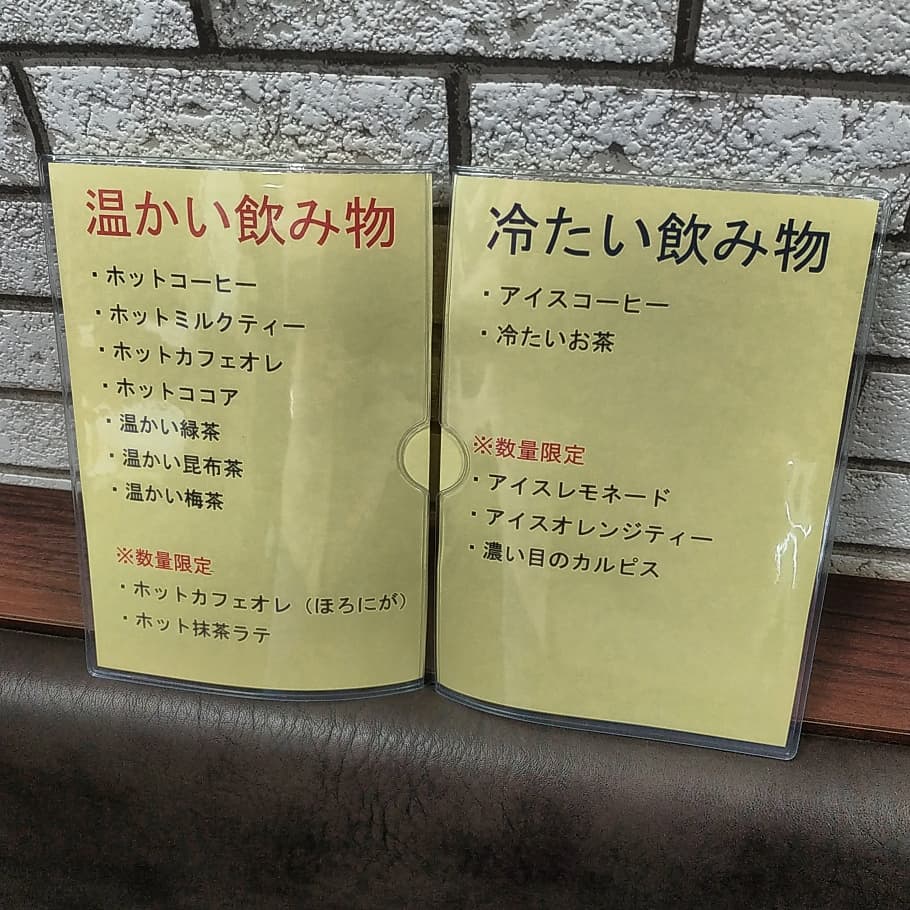 温かい飲み物
・ホットコーヒー
・ホットミルクティー
・ホットカフェオレ
・ホットココア
・温かい緑茶
・温かい昆布茶
・温かい梅茶
※数量限定
・ホットカフェオレ（ほろにが）
・ホット抹茶ラテ
冷たい飲み物
・アイスコーヒー
・冷たいお茶
※数量限定
・アイスレモネード
・アイスオレンジティー
・濃い目のカルピス